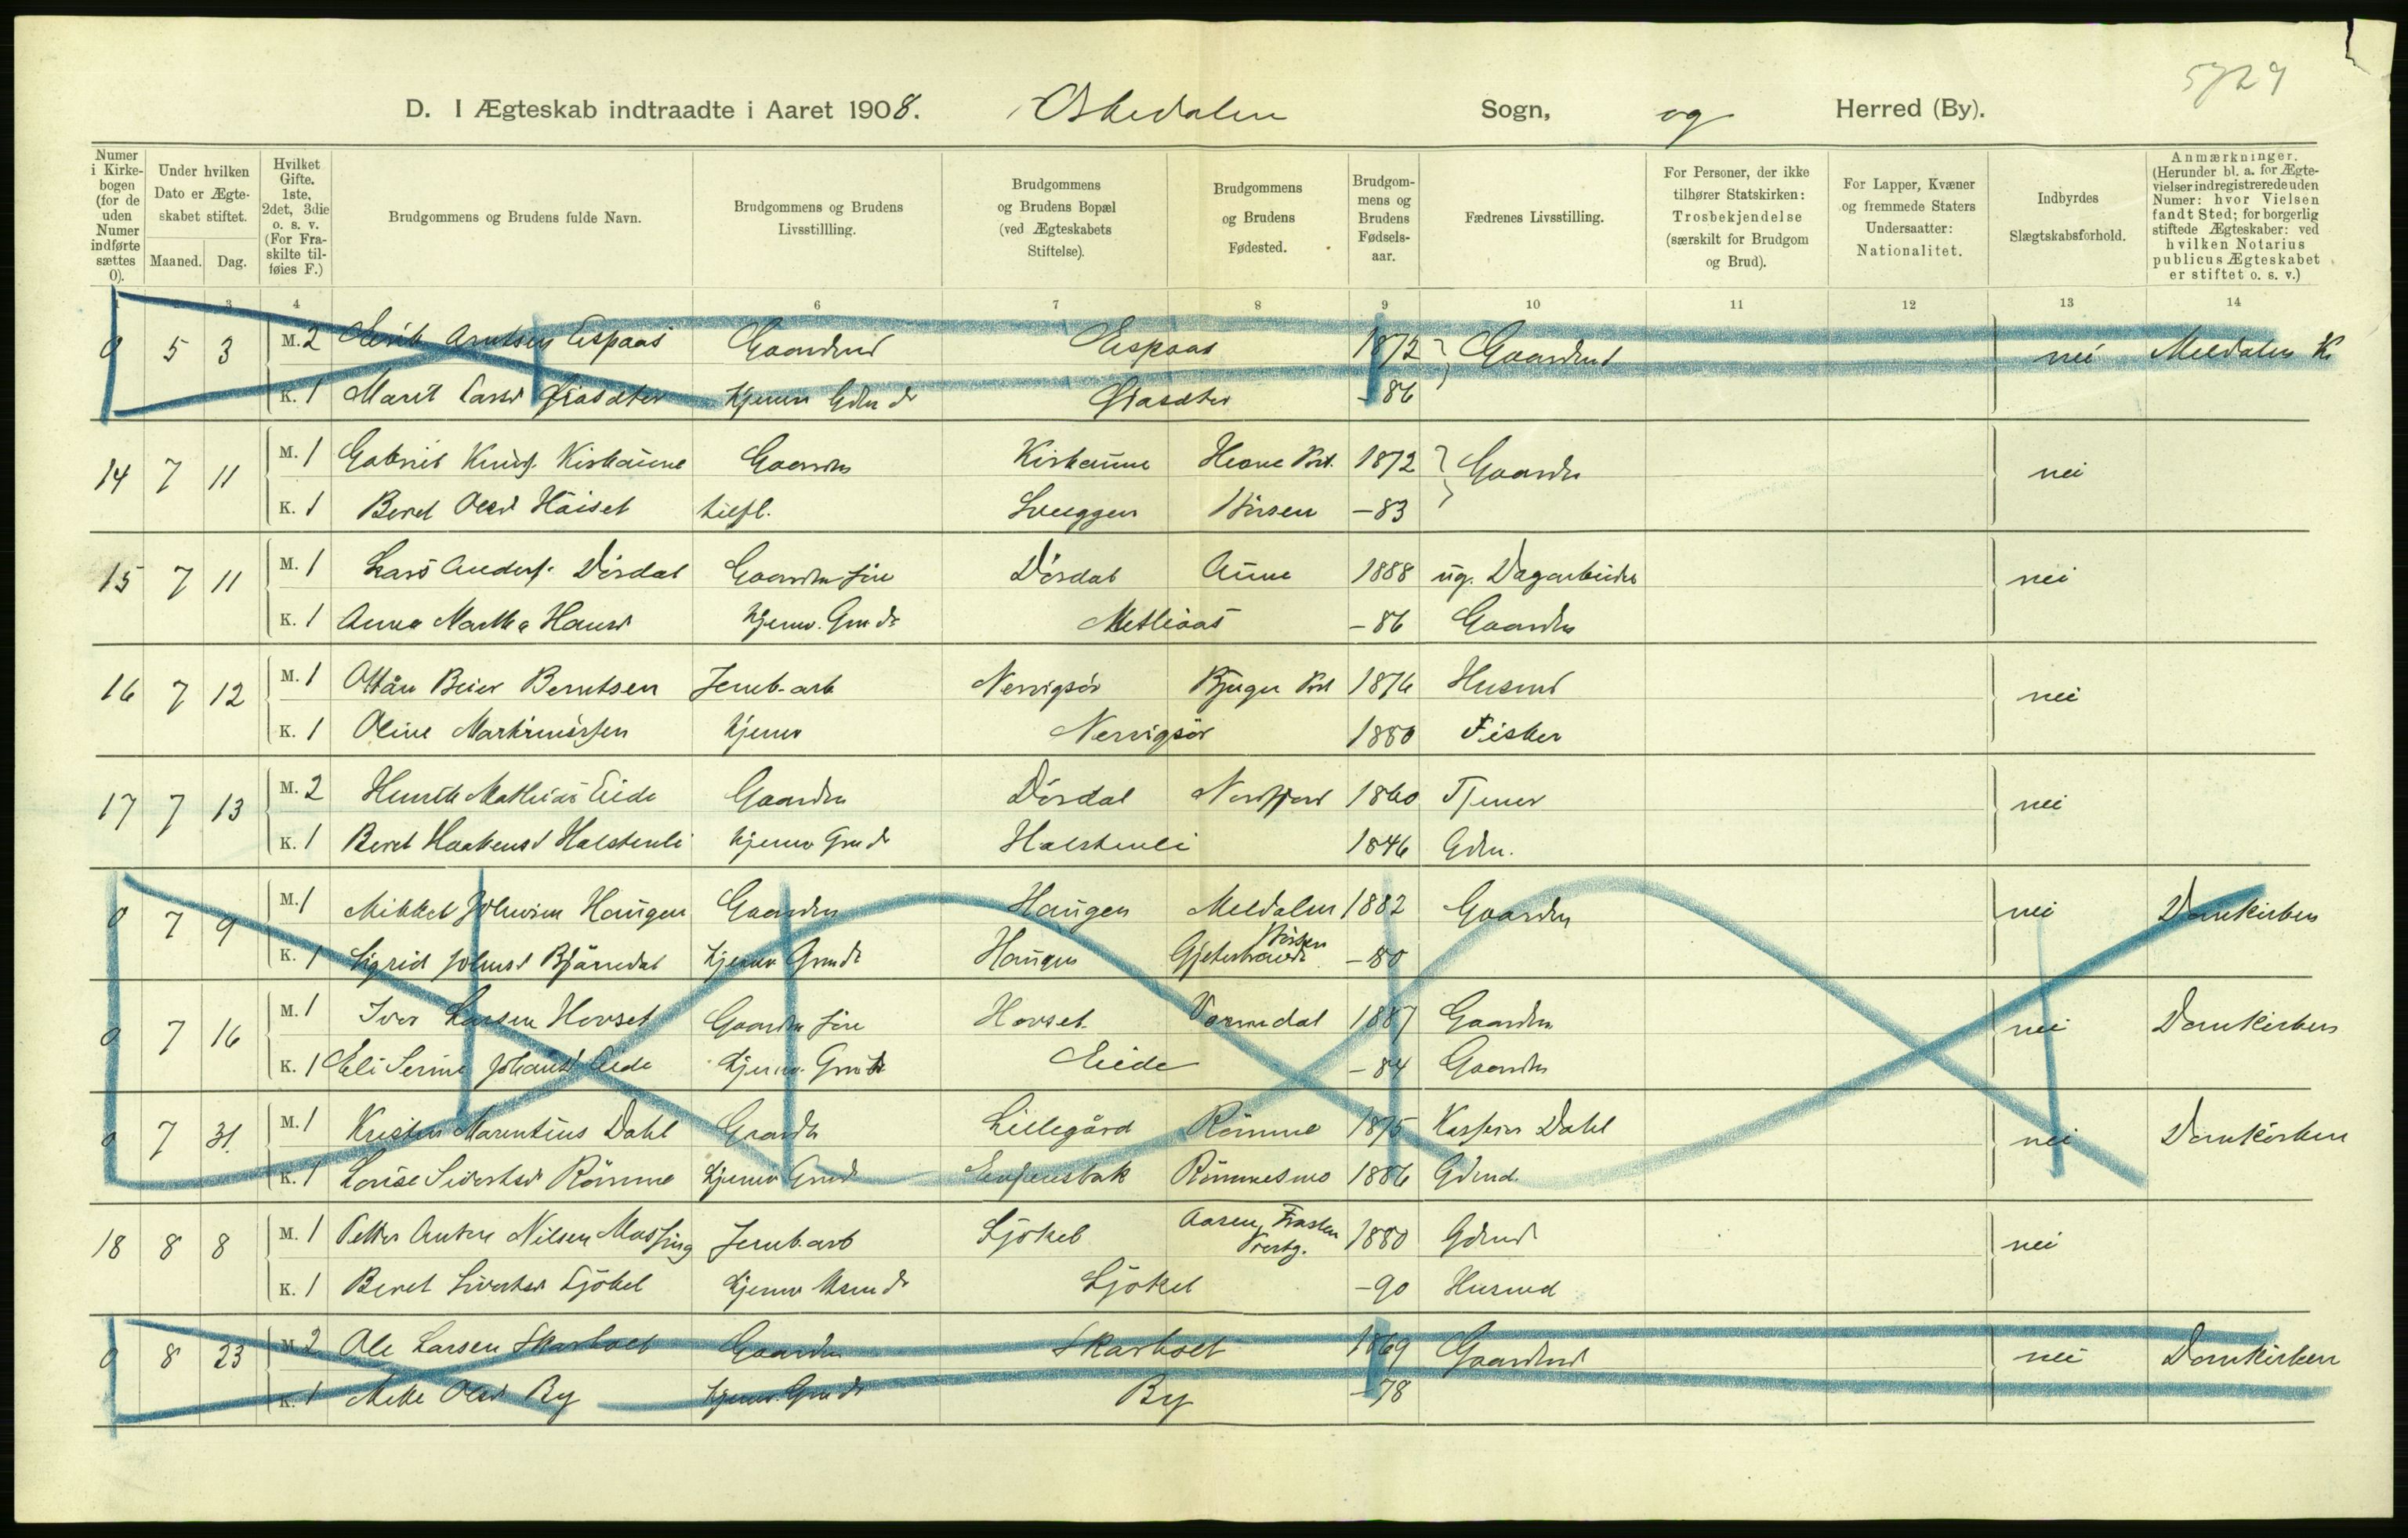 5724
D. I Ægteskab indtraadte i Aaret 1908. Orkedalen Sogn, og Herred (By).
Numer i Kirke-bogen (for de uden Numer indførte sættes 0).
Under hvilken Dato er Ægte-skabet stiftet.
Maaned. Dag.
Hvilket Gifte. 1ste, 2det, 3die o. s. v. (For Fra-skilte til-føies F.)
Brudgommens og Brudens fulde Navn.
Brudgommens og Brudens Livsstillling.
Brudgommens og Brudens Bopæl (ved Ægteskabets Stiftelse).
Brudgommens og Brudens Fødested.
Brudgom-mens og Brudens Fødsels-aar.
Fædrenes Livsstilling.
For Personer, der ikke tilhører Statskirken: Trosbekjendelse (særskilt for Brudgom og Brud).
For Lapper, Kvæner og fremmede Staters Undersaatter: Nationalitet.
Indbyrdes Slægtskabsforhold.
Anmærkninger. (Herunder bl. a. for Ægte-vielser indregistrerede uden Numer: hvor Vielsen fandt Sted; for borgerlig stiftede Ægteskaber: ved hvilken Notarius publicus Ægteskabet er stiftet o. s. v.)
3 4 6 7 8 9 10 11 12 13 14
0 5 3 M. 2 Arntsen Espaas Gaardmd Espaas 1872 Gaardmd nei Meldalen K.
K. 1 Marit Larsd Hjemv Gdm d - 86
14 7 11 M. 1 Gabriel Knuts. Kirkaune Gaardm Kirkaune Hevne Prst. 1872 Gaardm nei
K. 1 Beret Olsd Häiset Snuggen Börsen - 83
15 7 11 M. 1 Lars Anders. Dördal Gaardm Dördal Aune 1888 ug. Dagarbeider nei
K. 1 Anna Martha Hansd Hjemv. Gmd Metliaas - 86 Gaardm
16 7 12 M. 1 Beier Berntsen Jernb. arb Nervigsör Bjugn Prst 1876 Husmd nei
K. 1 Oline Martinussen Hjemv Nervigsör 1880 Fisker
17 7 13 M. 2 Henrik Mathias Eide Gaardm Dördal Nordfjord 1860 Tjener nei
K. 1 Beret Haakensd Halstenli Hjemv Gmd Halstenli 1846 Gdm.
0 7 9 M. 1 Mikkel Johnsen Haugen Gaardm Haugen Meldalen 1882 Gaardm nei Domkirken
K. 1 Sigrid Johnsd Bjørndal Hjemv Gmd Haugen Gjeterstrand Börsen - 80
0 7 16 M. 1 Iver Larsen Hovset Gaardm Hovset Vormdal 1887 Gaardm nei Domkirken
K. 1 Eli Serine Johansd Eide Hjemv. Gmd Eide - 84 Gaardm
0 7 31. M. 1 Kristen Marentius Dahl Gaardm Lillegård Römme 1875 Dahl nei Domkirken
K. 1 Lovise Sivertsd Römme Hjemv Gmd Römmesmo 1886 Gdmd.
18 8 8 M. 1 Petter Anton Nilsen Massing Jernb. arb Ljökel Aasen, Frosten 1880 Gdmd nei
K. 1 Beret Sivertsd Ljökel Hjemv Hsmd Ljökel - 90 Husmd
0 8 23 M. 2 Ole Larsen Skarholt Gaardm Skarholt 1869 Gaardmd nei Domkirken
K. 1 Mette Olsd By Hjemv. Gmd By - 78